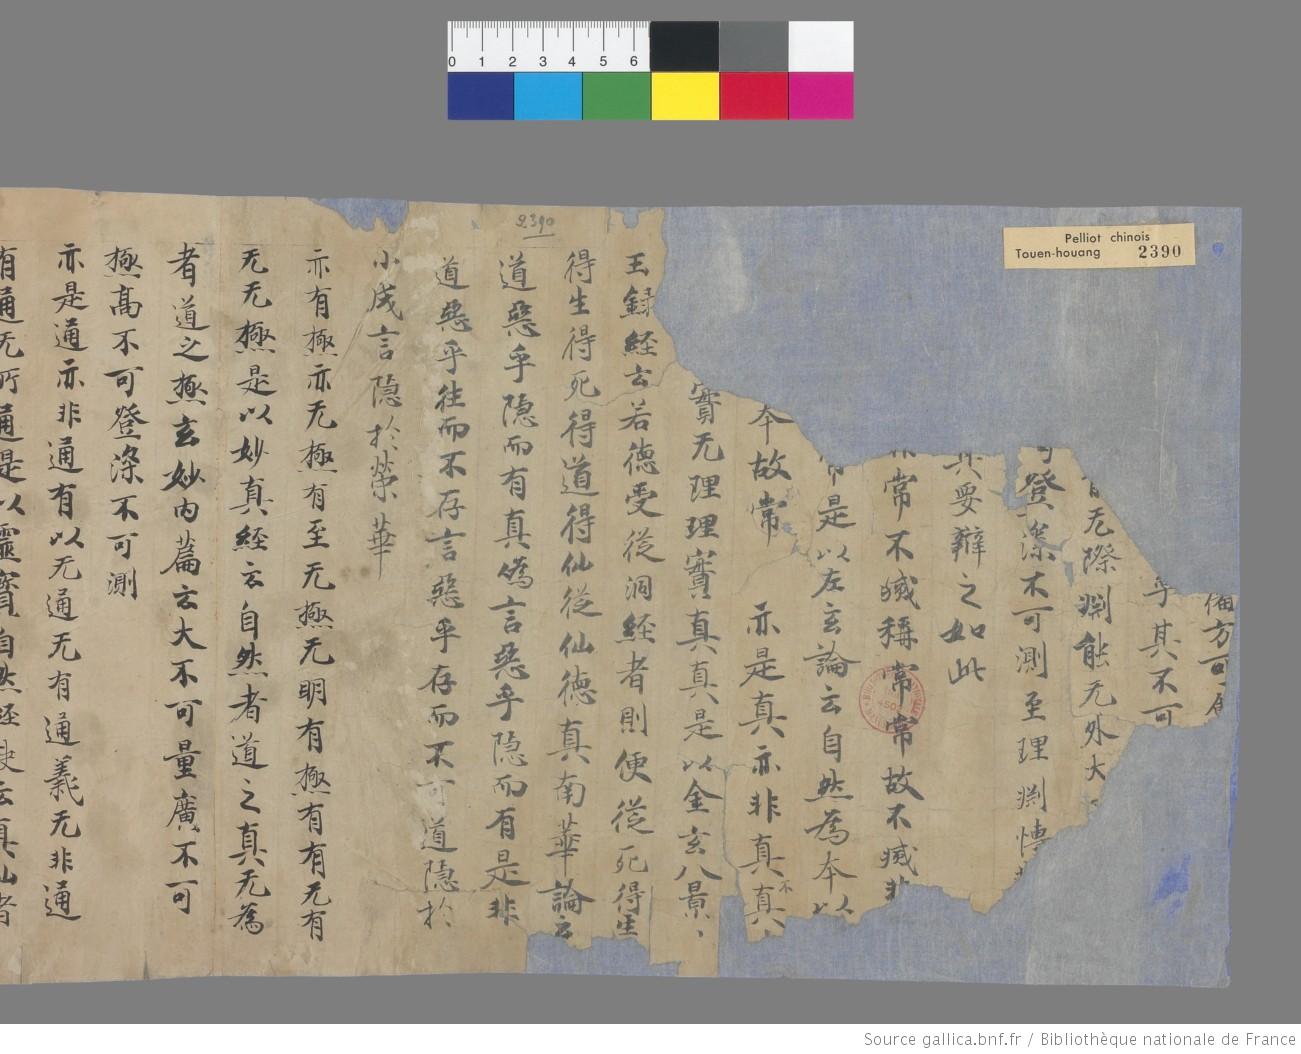 0 1 2 3 4 5 6
Pelliot chinois
Touen-houang 2390
2390
方可
乎其不可
无際淵能无外大
登深不可測至理淵博
其要辯之如此
常不滅稱常常故不滅非
是以左玄論云自然為本以
本故常 亦是真亦非真真不
實无理理實真真是以金玄八景
玉録經云若德受從洞經者則便從死得生
得生得死得道得仙從仙德真南華論云
道惡乎隱而有真僞言惡乎隱而有是非
道惡乎往而不存言惡乎存而不可道隱於
小成言隱於榮華
亦有極亦无極有至无極无明有極有有无有
无无極是以妙真經云自然者道之真无為
者道之極玄妙內篇云大不可量廣不可
極高不可登深不可測
亦是通亦非通有以无通无有通義无非通
有通无所通是以靈寶自然經訣云真仙者
Source gallica.bnf.fr / Bibliothèque nationale de France